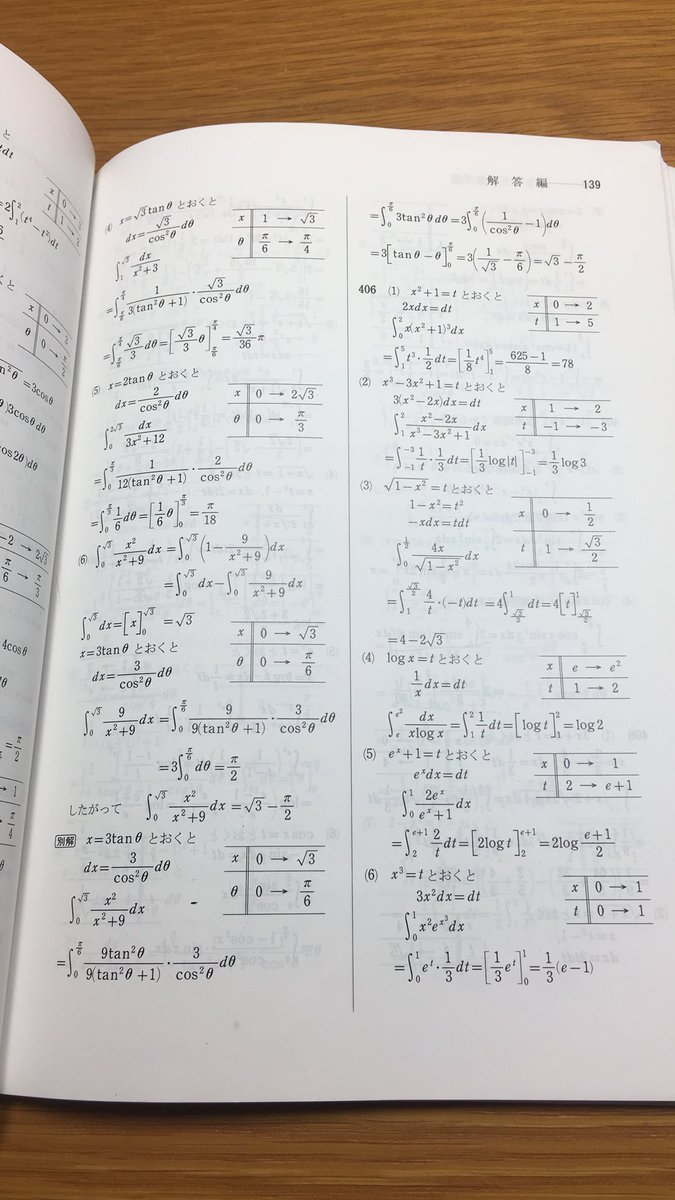 解答編 139
(4) x=√3tanθ とおくと
dx=√3/cos²θ dθ
x | 1 → √3
θ | π/6 → π/4
∫_1^{√3} dx/(x²+3)
=∫_{π/6}^{π/4} 1/(3(tan²θ+1))・√3/cos²θ dθ
=∫_{π/6}^{π/4} √3/3 dθ=[√3/3 θ]_{π/6}^{π/4}=√3/36 π
(5) x=2tanθ とおくと
dx=2/cos²θ dθ
x | 0 → 2√3
θ | 0 → π/3
∫_0^{2√3} dx/(3x²+12)
=∫_0^{π/3} 1/(12(tan²θ+1))・2/cos²θ dθ
=∫_0^{π/3} 1/6 dθ=[1/6 θ]_0^{π/3}=π/18
(6) ∫_0^{√3} x²/(x²+9) dx=∫_0^{√3} (1−9/(x²+9))dx
=∫_0^{√3} dx−∫_0^{√3} 9/(x²+9) dx
∫_0^{√3} dx=[x]_0^{√3}=√3
x=3tanθ とおくと
dx=3/cos²θ dθ
x | 0 → √3
θ | 0 → π/6
∫_0^{√3} 9/(x²+9) dx=∫_0^{π/6} 9/(9(tan²θ+1))・3/cos²θ dθ
=3∫_0^{π/6} dθ=π/2
したがって ∫_0^{√3} x²/(x²+9) dx=√3−π/2
別解 x=3tanθ とおくと
dx=3/cos²θ dθ
x | 0 → √3
θ | 0 → π/6
∫_0^{√3} x²/(x²+9) dx
=∫_0^{π/6} 9tan²θ/(9(tan²θ+1))・3/cos²θ dθ
=∫_0^{π/6} 3tan²θdθ=3∫_0^{π/6} (1/cos²θ−1)dθ
=3[tanθ−θ]_0^{π/6}=3(1/√3−π/6)=√3−π/2
406 (1) x²+1=t とおくと
2xdx=dt
x | 0 → 2
t | 1 → 5
∫_0^2 x(x²+1)³dx
=∫_1^5 t³・1/2 dt=[1/8 t⁴]_1^5=(625−1)/8=78
(2) x³−3x²+1=t とおくと
3(x²−2x)dx=dt
x | 1 → 2
t | −1 → −3
∫_1^2 (x²−2x)/(x³−3x²+1) dx
=∫_{−1}^{−3} 1/t・1/3 dt=[1/3 log|t|]_{−1}^{−3}=1/3 log3
(3) √(1−x²)=t とおくと
1−x²=t²
−xdx=tdt
x | 0 → 1/2
t | 1 → √3/2
∫_0^{1/2} 4x/√(1−x²) dx
=∫_1^{√3/2} 4/t・(−t)dt=4∫_{√3/2}^1 dt=4[t]_{√3/2}^1
=4−2√3
(4) logx=t とおくと
1/x dx=dt
x | e → e²
t | 1 → 2
∫_e^{e²} dx/(xlogx)=∫_1^2 1/t dt=[logt]_1^2=log2
(5) eˣ+1=t とおくと
eˣdx=dt
x | 0 → 1
t | 2 → e+1
∫_0^1 2eˣ/(eˣ+1) dx
=∫_2^{e+1} 2/t dt=[2logt]_2^{e+1}=2log (e+1)/2
(6) x³=t とおくと
3x²dx=dt
x | 0 → 1
t | 0 → 1
∫_0^1 x²e^{x³}dx
=∫_0^1 eᵗ・1/3 dt=[1/3 eᵗ]_0^1=1/3(e−1)